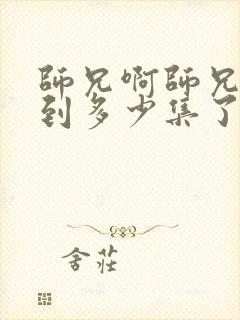 師兄啊師兄
到多少集了
舍莊